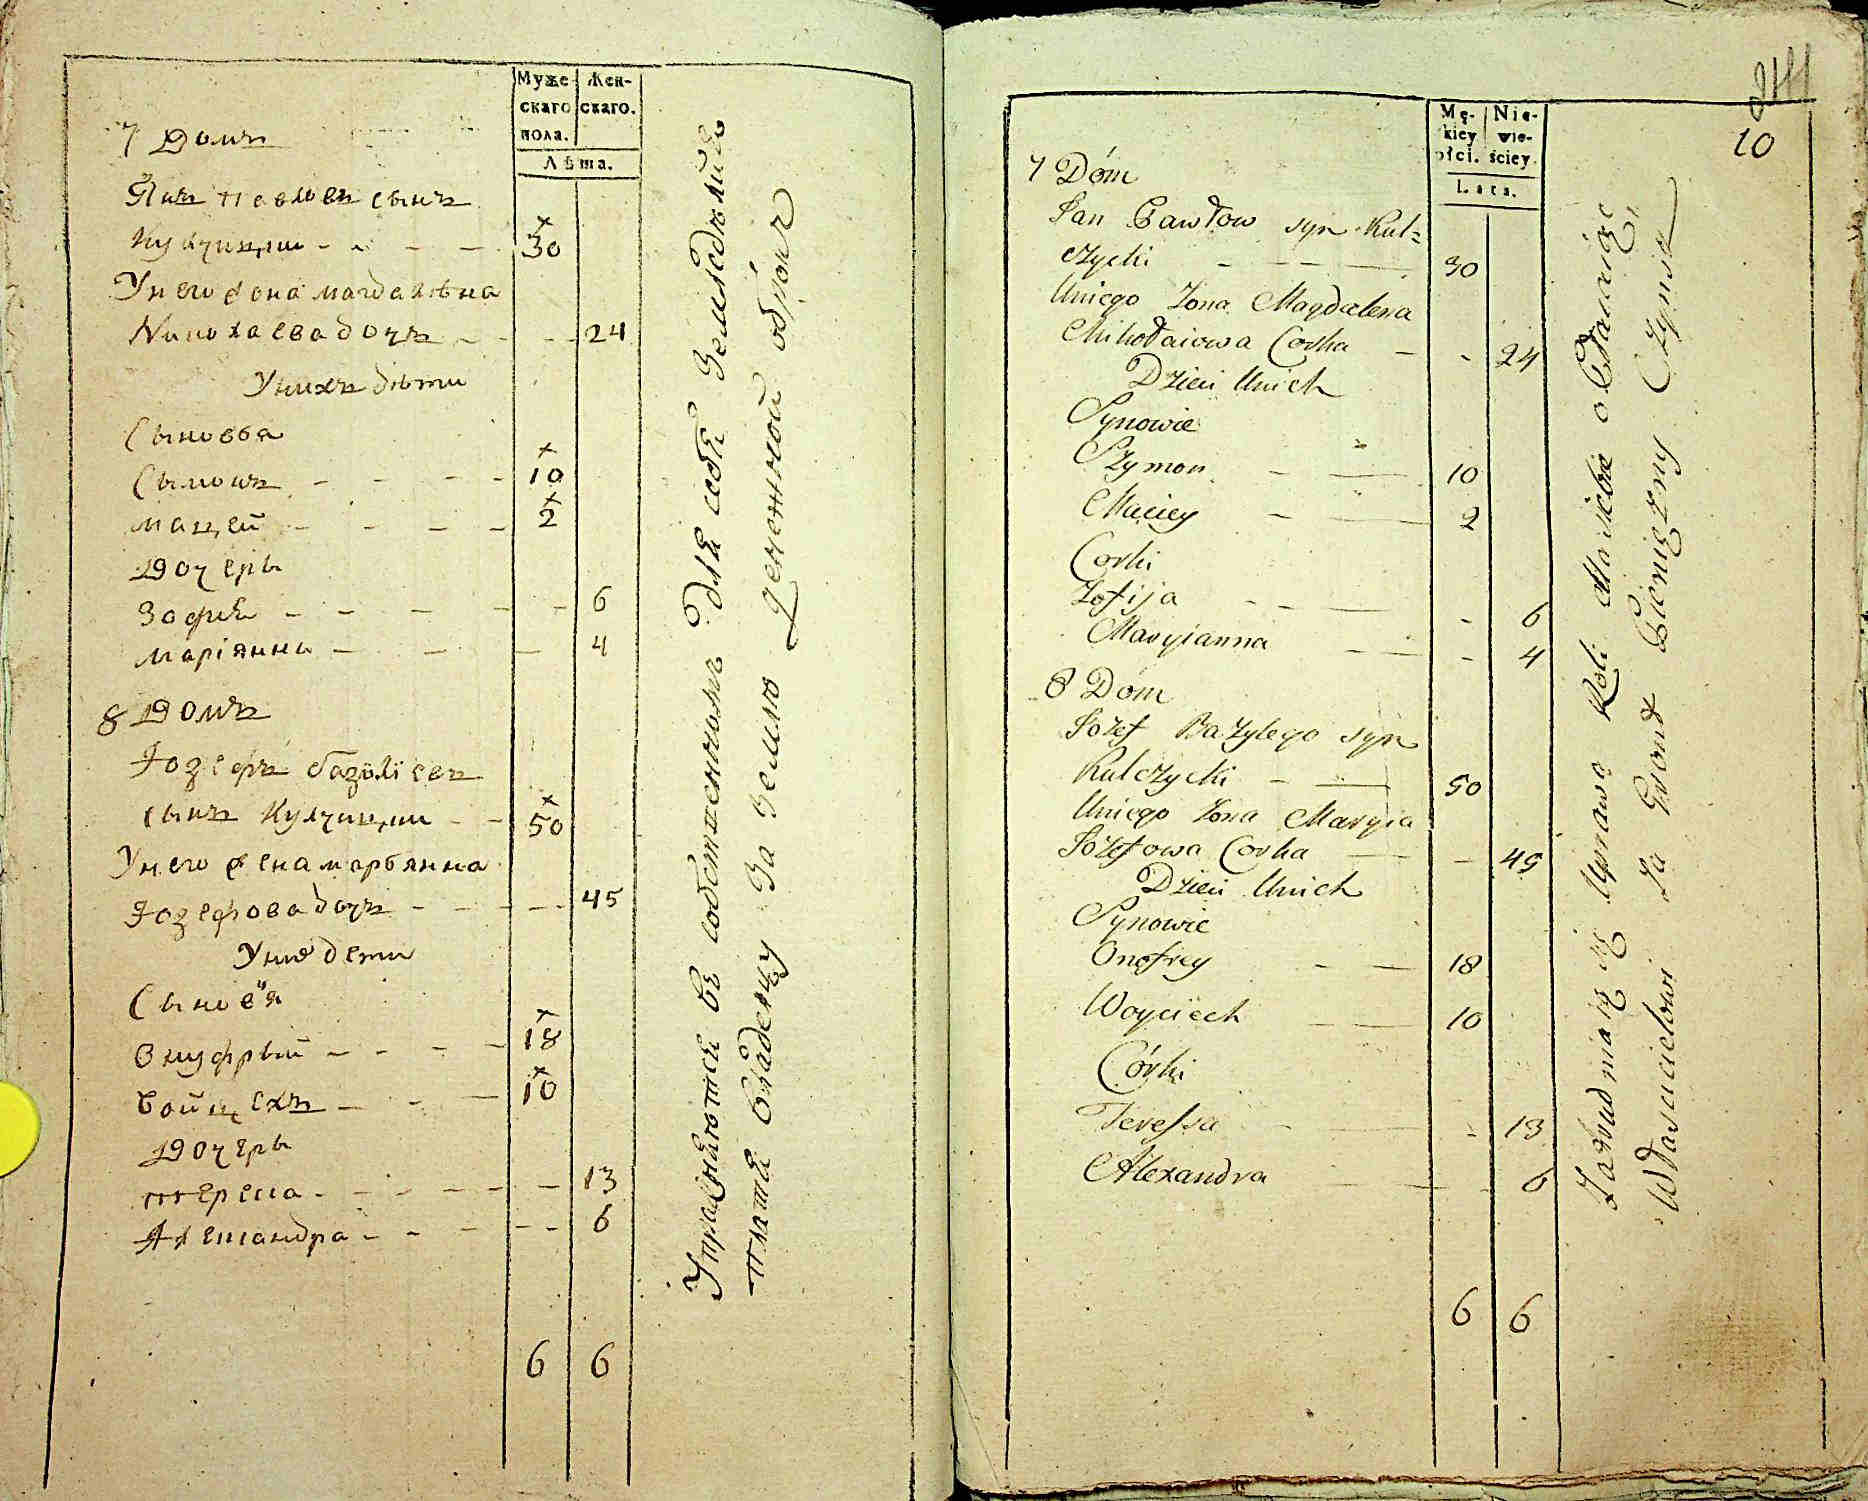 Муже-
скаго
пола.
Жен-
скаго.
Лѣта.
7 Домъ
Янъ Павловъ сынъ
Кулчицки
30
У него жена Магдалѣна
Миколаева дочъ
24
У нихъ дѣти
Сыновья
Сымонъ
10
Мацей
2
Дочеры
Зофія
6
Маріянна
4
8 Домъ
Іозефъ Базыліевъ
сынъ Кулчицки
50
У него жена Марьянна
Іозефова дочъ
45
У них дети
Сыновья
Онуфрый
18
Войцехъ
10
Дочеры
Тереса
13
Александра
6
6 6
Упражняются въ собственномъ для себя Земледѣлии
платя владельцу за землю денежной оброкъ
244
10
Mę-
kiey
płci.
Nie-
wie-
ściey.
Lata.
7 Dóm
Jan Pawłow syn Kul=
czycki
30
Uniego Zona Magdalena
Mikołaiowa Corka
24
Dzieci Unich
Synowie
Szymon
10
Maciey
2
Corki
Zofija
6
Maryianna
4
8 Dóm
Jozef Bazylego syn
Kulczycki
50
Uniego Zona Maryia
Jozefowa Corka
45
Dzieci Unich
Synowie
Onofrey
18
Woyciech
10
Córki
Teressa
13
Alexandra
6
6 6
Zatrudniaią się Uprawą Roli dla siebie opłacaiąc
Włascicielowi Za Grunt Pieniężny Czynsz